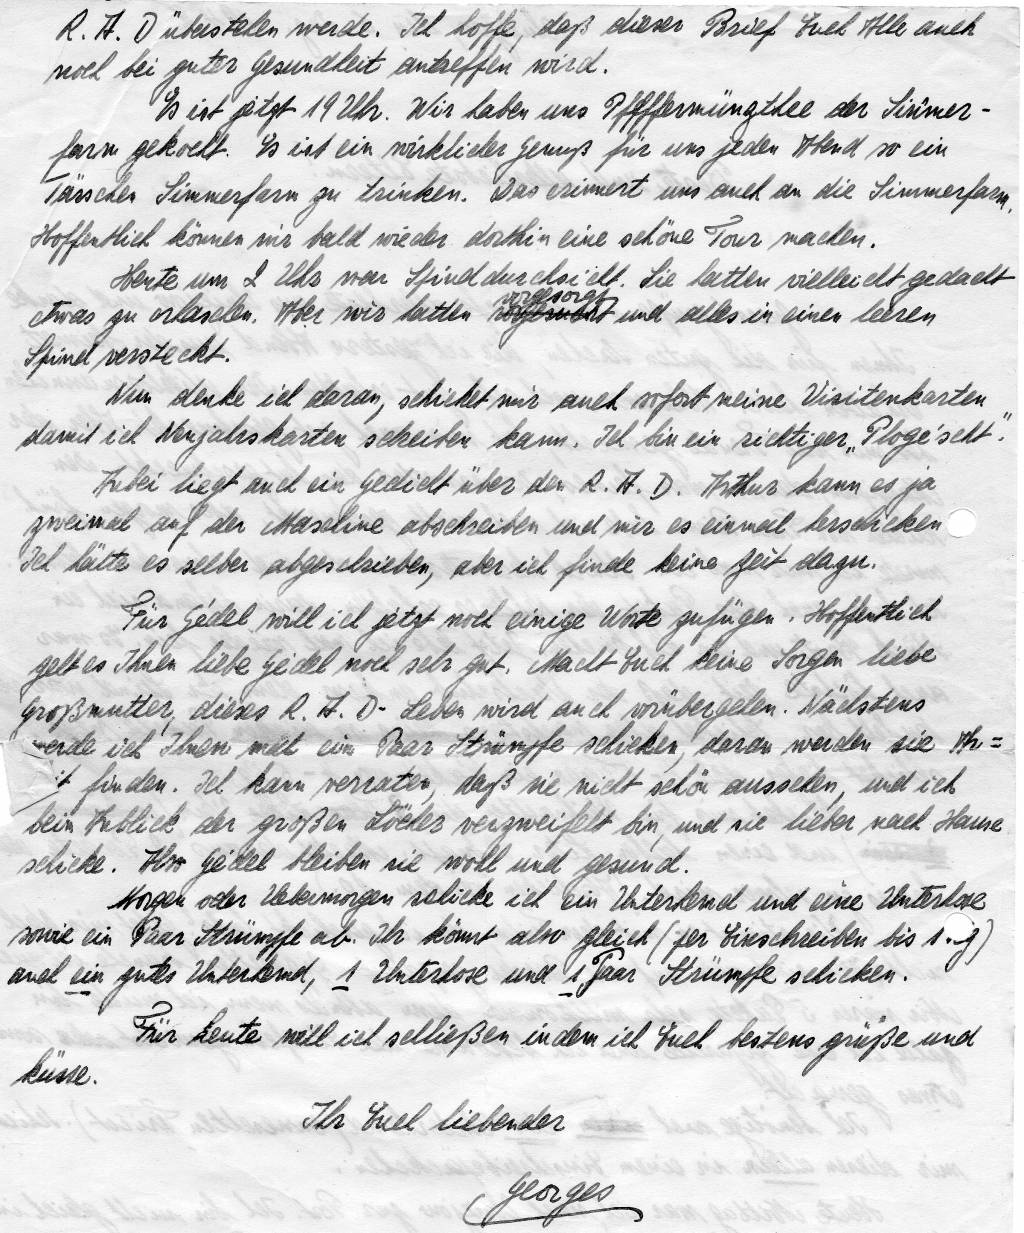 R. A. D überstehen werde. Ich hoffe, daß dieser Brief Euch Alle auch
noch bei guter Gesundheit antreffen wird.
Es ist jetzt 19 Uhr. Wir haben uns Pfeffermünzthee der Simmer-
farm gekocht. Es ist ein wirklicher Genuß für uns jeden Abend so ein
Tässchen Simmerfarm zu trinken. Das erinnert uns auch an die Simmerfarm.
Hoffentlich können wir bald wieder dorthin eine schöne Tour machen.
Heute um 2 Uhr war Spinddurchsicht. Sie hatten vielleicht gedacht
etwas zu erhaschen. Aber wir hatten vorgesorgt und alles in einen leeren
Spind versteckt.
Nun denke ich daran, schicket mir auch sofort meine Visitenkarten
damit ich Neujahrskarten schreiben kann. Ich bin ein richtiger „Plogéscht“.
Anbei liegt auch ein Gedicht über den R. A. D. Arthur kann es ja
zweimal auf der Maschine abschreiben und mir es einmal herschicken
Ich hätte es selber abgeschrieben, aber ich finde keine Zeit dazu.
Für Gédel will ich jetzt noch einige Worte zufügen. Hoffentlich
geht es Ihnen liebe Gédel noch sehr gut. Macht Euch keine Sorgen liebe
Großmutter, dieses R. A. D- Leben wird auch vorübergehen. Nächstens
werde ich Ihnen mal ein Paar Strümpfe schicken, daran werden sie Ar=
it finden. Ich kann verraten, daß sie nicht schön aussehen, und ich
beim Anblick der großen Löcher verzweifelt bin, und sie lieber nach Hause
schicke. Also Gédel bleiben sie wohl und gesund.
Morgen oder Uebermorgen schicke ich ein Unterhemd und eine Unterhose
sowie ein Paar Strümpfe ab. Ihr könnt also gleich (per Einschreiben bis 1. g)
auch ein gutes Unterhemd, 1 Unterhose und 1 Paar Strümpfe schicken.
Für heute will ich schließen indem ich Euch bestens grüße und
küsse.
Ihr Euch liebender
Georges